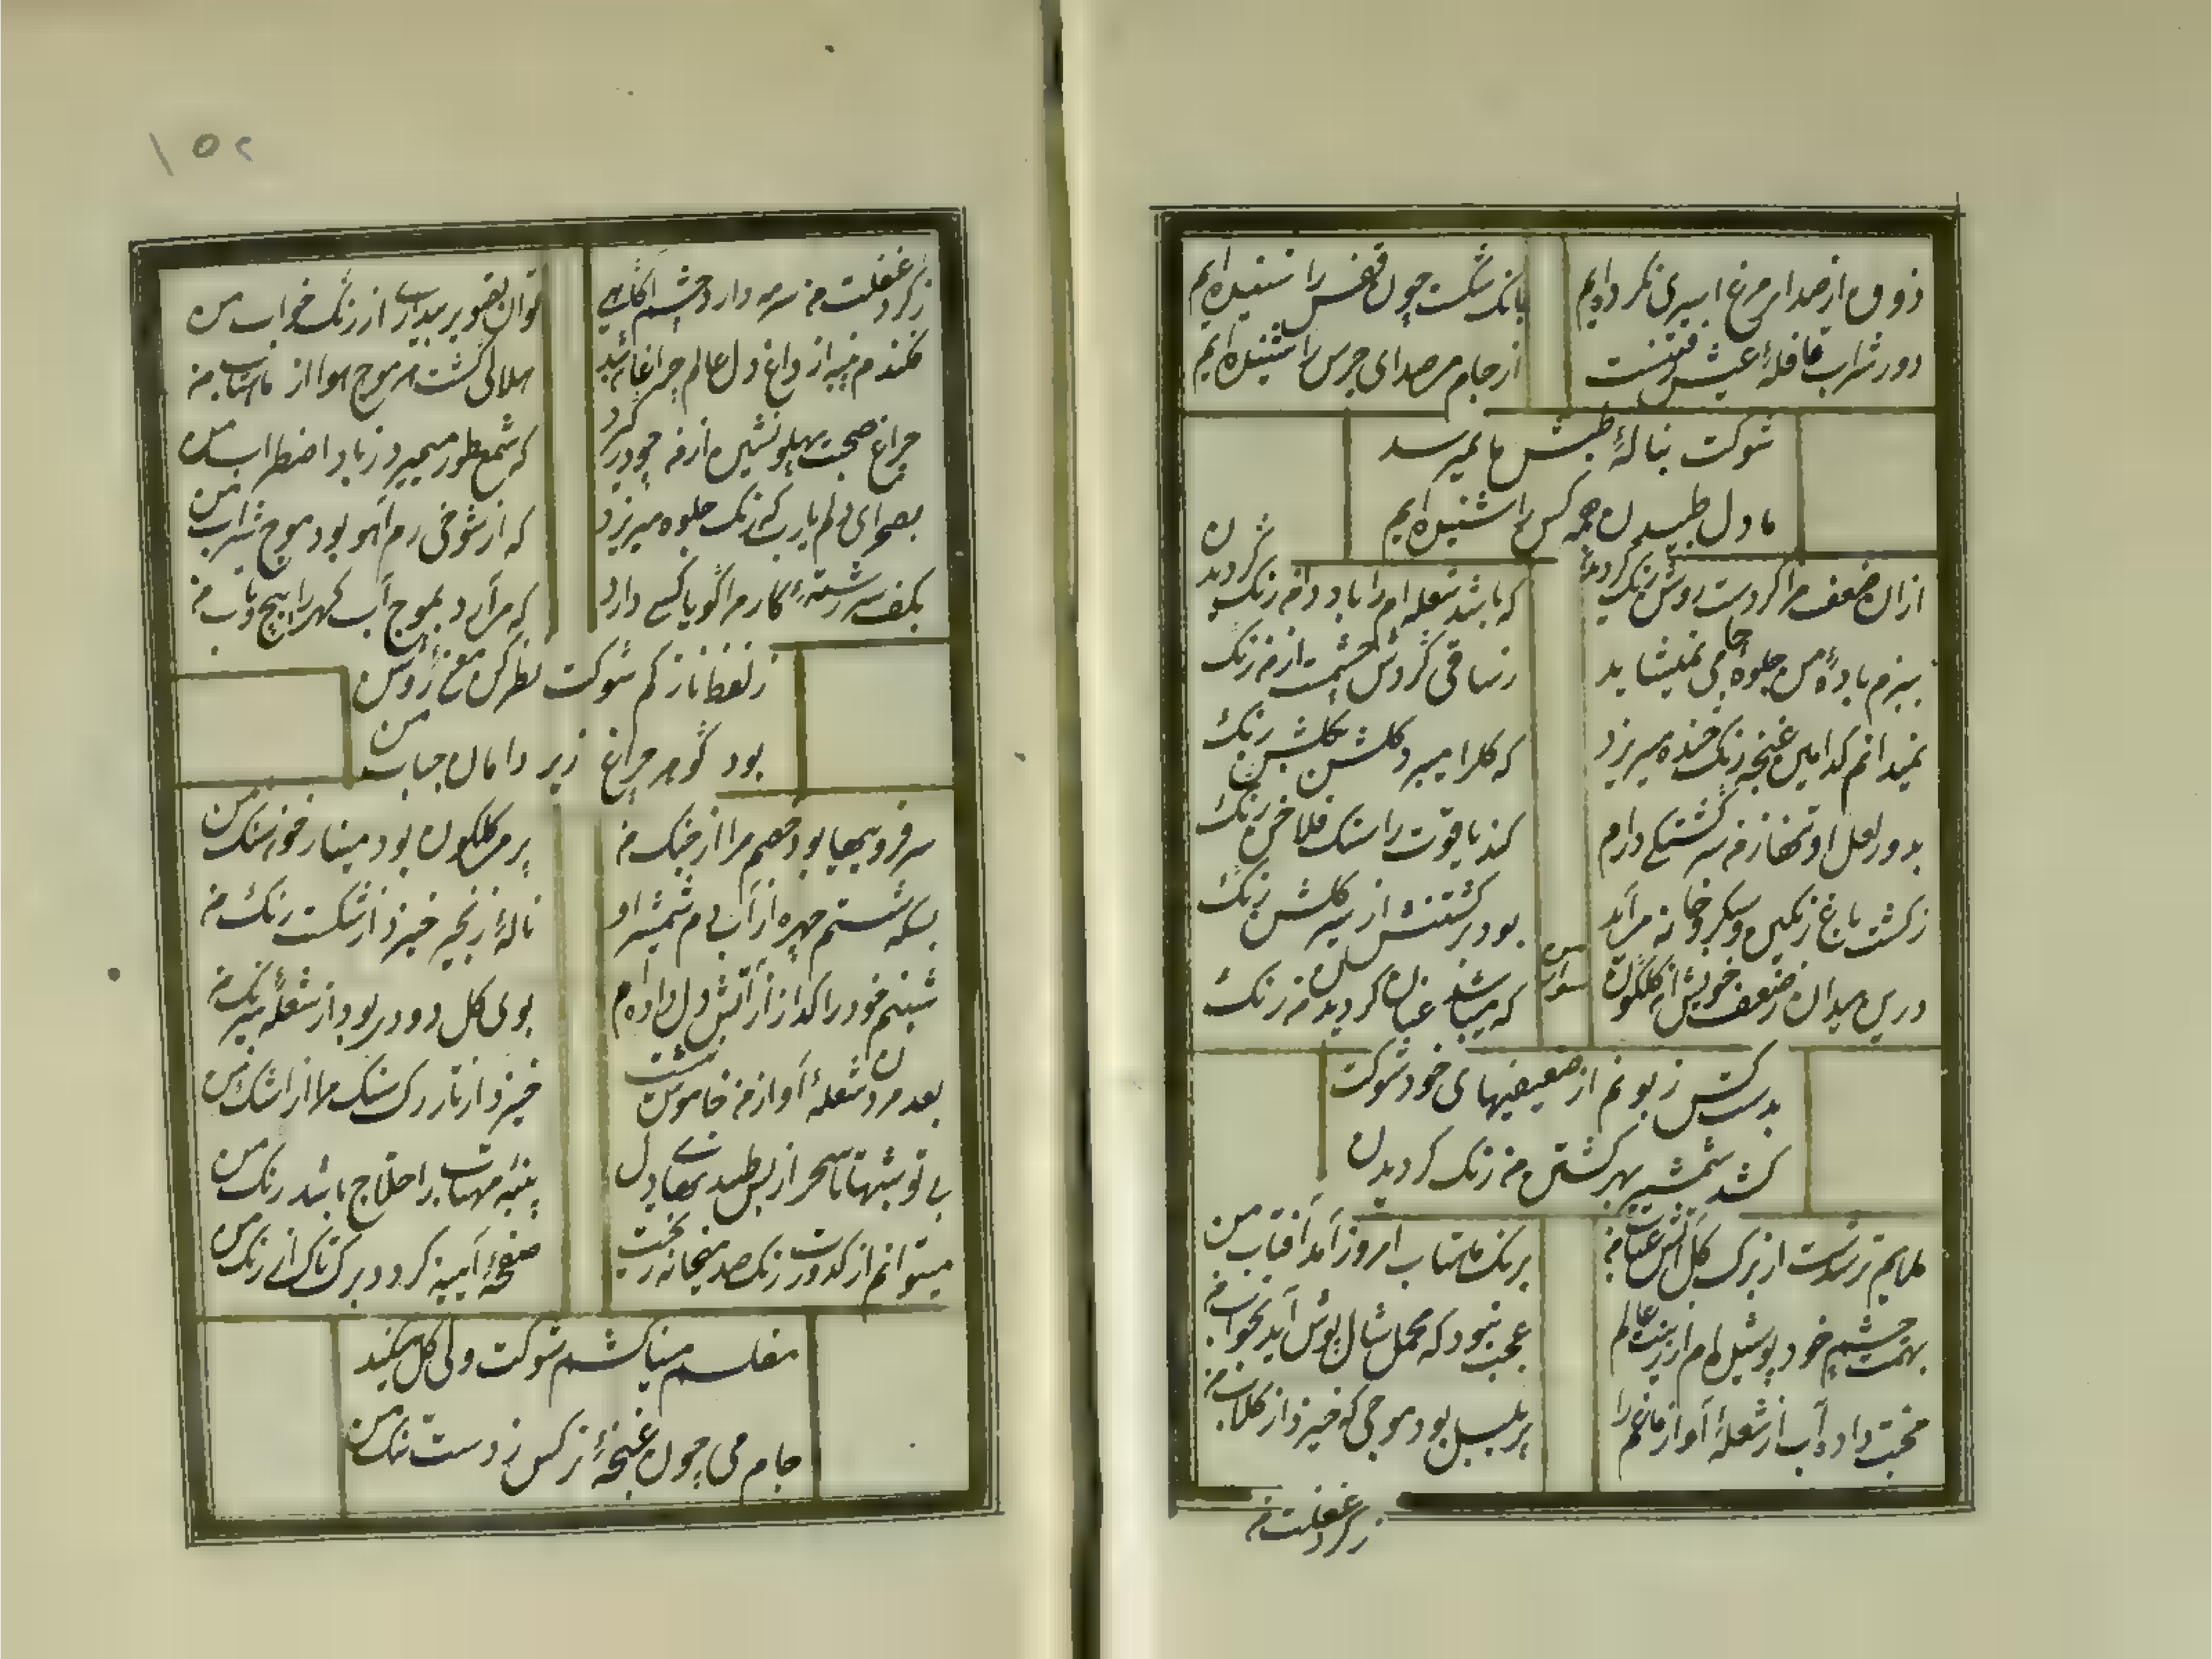 ذوق از صدای مرغ اسیری نکرده‌ایم
بانک شکست چون قفس را شنیده‌ایم
دور شراب قافلهٔ عیش
از جام مر صدای جرس را شنیده‌ایم
شوکت بنالهٔ طپش ما نمیرسد
ما دل طپیدن همه کس را شنیده‌ایم
ازان ضعف مرا کردست روشن رنگ گردیدن
که باشد شعله‌ام را باد دامن رنگ گردیدن
ببزم باده من جلوه جامی نمیشاید
ز ساقی گردش چشمست از من رنگ
نمیدانم کدامین غنچه رنگ خنده میریزد
که کلرا میبرد کلشن بکلشن رنگ
بدور لعل او تنها نه من سرکشتکی دارم
کند یاقوت را سنک فلاخن رنگ
ز کشت باغ رنکین و سبکروحانه مر آید
بود برکشتنش از سیر کلشن رنگ
درین میدان ز ضعف خویش آن کلکون سوارم من
که میباشد عنان کردیدن من رنگ
بدست کس زبونم از ضعیفیهای خود شوکت
کشد شمشیر بهر کشتن من رنگ کردیدن
ملایم تر شدست از برک کل آتش عتاب من
برنک ماهتاب امروز آمد آفتاب من
بهمت چشم خود پوشیده‌ام از زینت عالم
عجب نبود که مخمل شال پوش آید بخواب من
محبت داده آب از شعلهٔ آواز باغم را
پر بلبل بود موجی که خیزد از کلاب من
ز کرد غفلت من
۱۵۲
ز کرد غفلت من سرمه دارد چشم آکاهی
توان تصویر بیداری از رنگ خواب من
فکندم خیمه از داغ دل عالم چراغان شد
هلالی کشت هر موج هوا از ماهتاب من
چراغ صحبت پهلو نشین از من چو در کیرد
که شمع طور میمیرد ز باد اضطراب من
بصحرای دلم یارب که رنگ جلوه میریزد
که از شوخی رم آهو بود موج شراب من
بکف سررشتهٔ کار مرا کویا کسی دارد
که مر آرد بموج آب کهر را پیچ و تاب من
ز لفظ نازکم شوکت نظر کن معنی روشن
بود کوهر چراغ زیر دامان حباب من
سر فرو بیجا بود خصم مرا از جنک من
پر می کلکون بود مینا ز خون سنک من
بسکه شستم چهره از آب دم شمشیر او
نالهٔ زنجیر خیزد از شکست رنک من
شبنم خود را کداز از آتش دل داده‌ام
بوی کل دود بود از شعلهٔ نیرنک من
بعد مردن شعلهٔ آواز من خاموش نیست
خیزد از تار رک سنک
بی تو شبها تا سحر از بس طپیدنهای دل
پنبهٔ مهتاب را حلاج باشد رنک من
میتوانم از کدورت رنک صد میخانه ریخت
صفحهٔ آیینه کردد برک تاک از رنک من
مفلسم میناکشم شوکت ولی کل میکند
جام می چون غنچهٔ نرکس ز دست تنک من